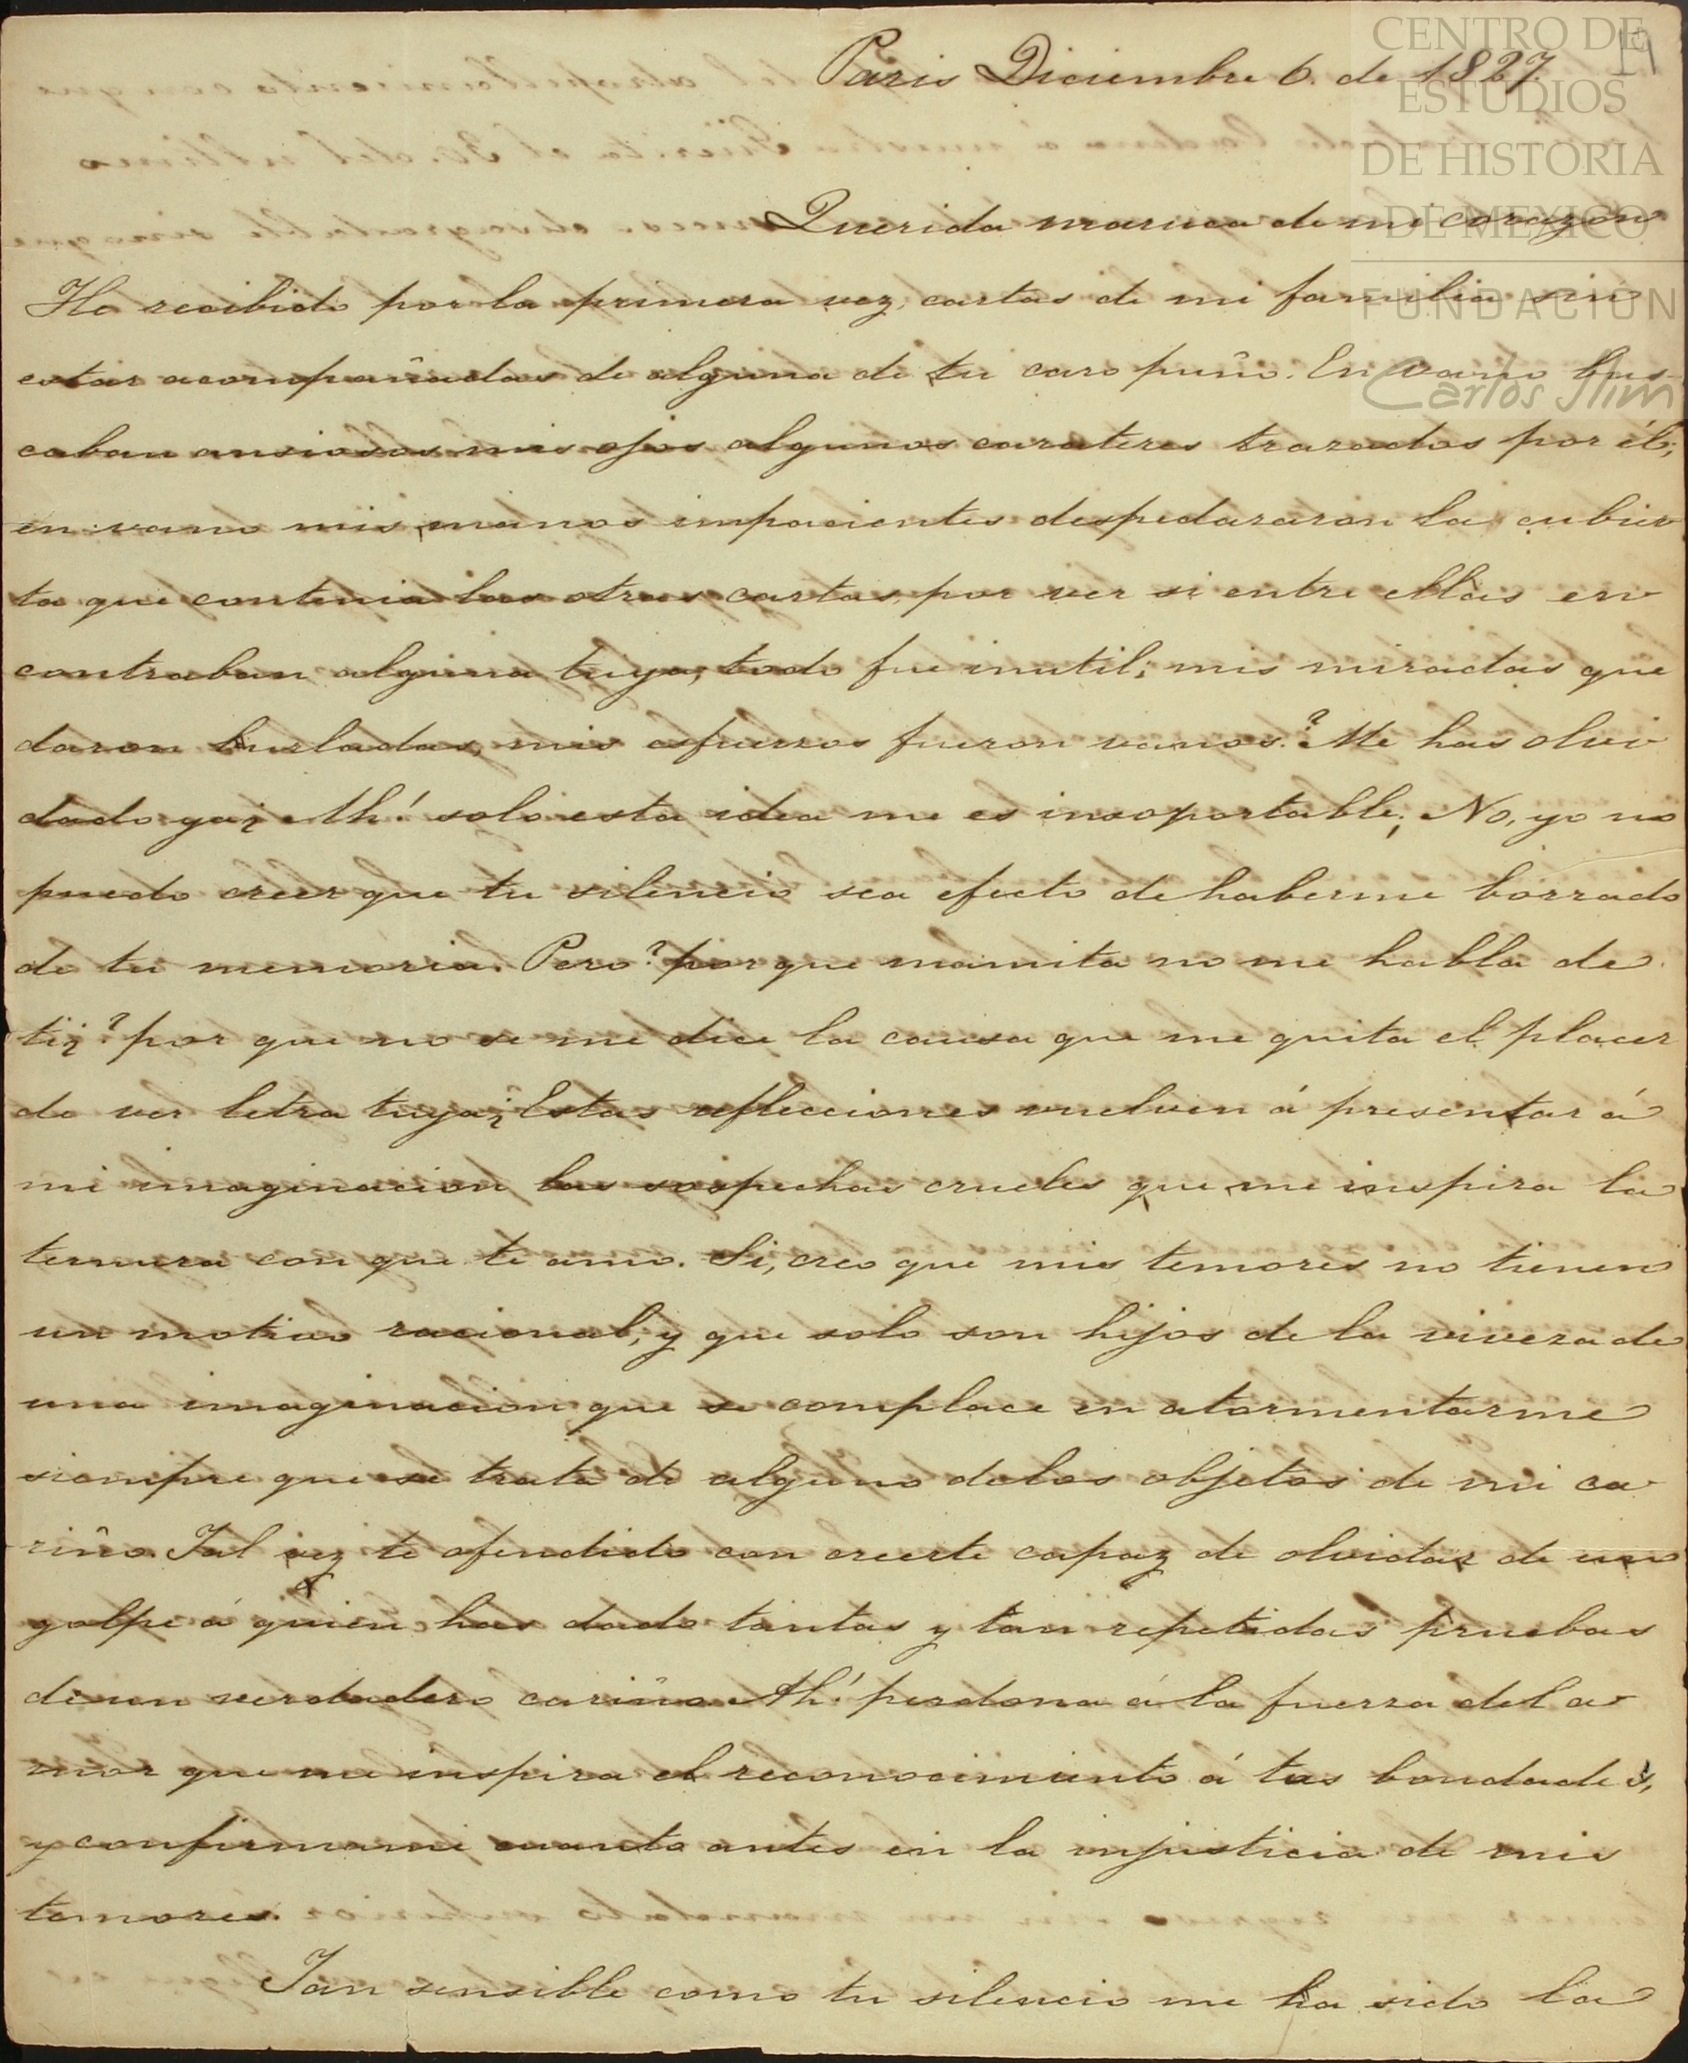 Paris Diciembre 6. de 1827.
14
CENTRO DE
ESTUDIOS
DE HISTORIA
DE MÉXICO
FUNDACIÓN
Carlos Slim
Querida maruca de mi corazon
He recibido por la primera vez, cartas de mi familia sin
estar acompañadas de alguna de tu caro puño. En vano bus-
caban ansiosos mis ojos algunos carateres trazados por él;
en vano mis manos impacientes despedazaron la cubier
ta que contenia las otras cartas, por ver si entre ellas en-
contraban alguna tuya; todo fue inutil; mis miradas que
daron burladas, mis esfuerzos fueron vanos. ? Me has olvi-
dado ya¿ Ah! solo esta idea me es insoportable; No, yo no
puedo creer que tu silencio sea efecto de haberme borrado
de tu memoria. Pero ? por que mamita no me habla de
ti¿ ? por que no se me dice la causa que me quita el placer
de ver letra tuya¿ Estas reflecciones vuelven á presentar á
mi imaginacion las sospechas crueles que me inspira la
ternura con que te amo. Si, creo que mis temores no tienen
un motivo racional, y que solo son hijos de la viveza de
una imaginacion que se complace en atormentarme
siempre que se trata de alguno de los objetos de mi ca-
riño. Tal vez te ofendido con creerte capaz de olvidar de un
golpe á quien has dado tantas y tan repetidas pruebas
de un verdadero cariño. Ah! perdona á la fuerza del a-
mor que me inspira el reconocimiento á tus bondades,
y confirmame cuanto antes en la injusticia de mis
temores.
Tan sensible como tu silencio me ha sido la